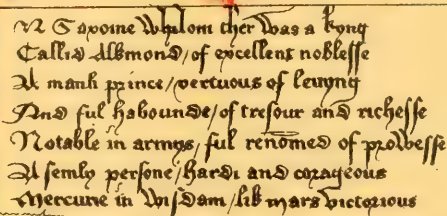 N Saxoine whilom ther was a kyng
Callid Alkmond / of excellent noblesse
A manli prince / vertuous of levyng
And ful habounde / of tresour and richesse
Notable in armys / ful renomed of prowesse
A semly persone / hardi and corageous
Mercurie in wisdam / lik mars victorious